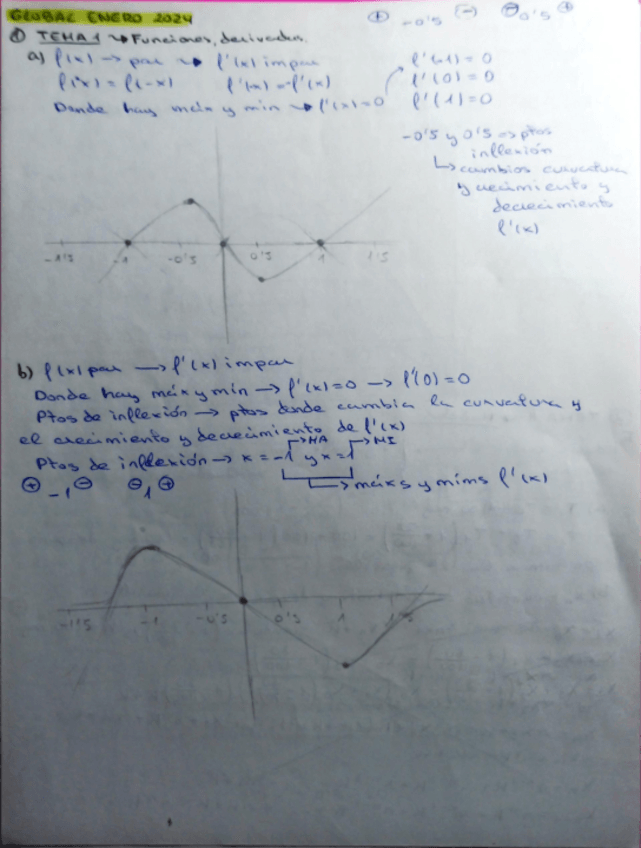 GLOBAL ENERO 2024
⊕ -0'5 (-) ⊖ 0'5 ⊕
① TEMA 1 → Funciones, derivadas.
a) f(x) → par → f'(x) impar
f(x) = f(-x) f'(-x) = -f'(x)
Donde hay máx y mín → f'(x)=0
f'(-1) = 0
f'(0) = 0
f'(1) = 0
-0'5 y 0'5 => ptos
inflexión
↳ cambios curvatura
y crecimiento y
decrecimiento
f'(x)
-1'5 -1 -0'5 0'5 1 1'5
b) f(x) par → f'(x) impar
Donde hay máx y mín → f'(x)=0 → f'(0)=0
Ptos de inflexión → ptos donde cambia la curvatura y
el crecimiento y decrecimiento de f'(x)
→MA →MI
Ptos de inflexión → x = -1 y x = 1
⊕ -1 ⊖ ⊖ 1 ⊕
→ máxs y míns f'(x)
-1'5 -1 -0'5 0'5 1 1'5